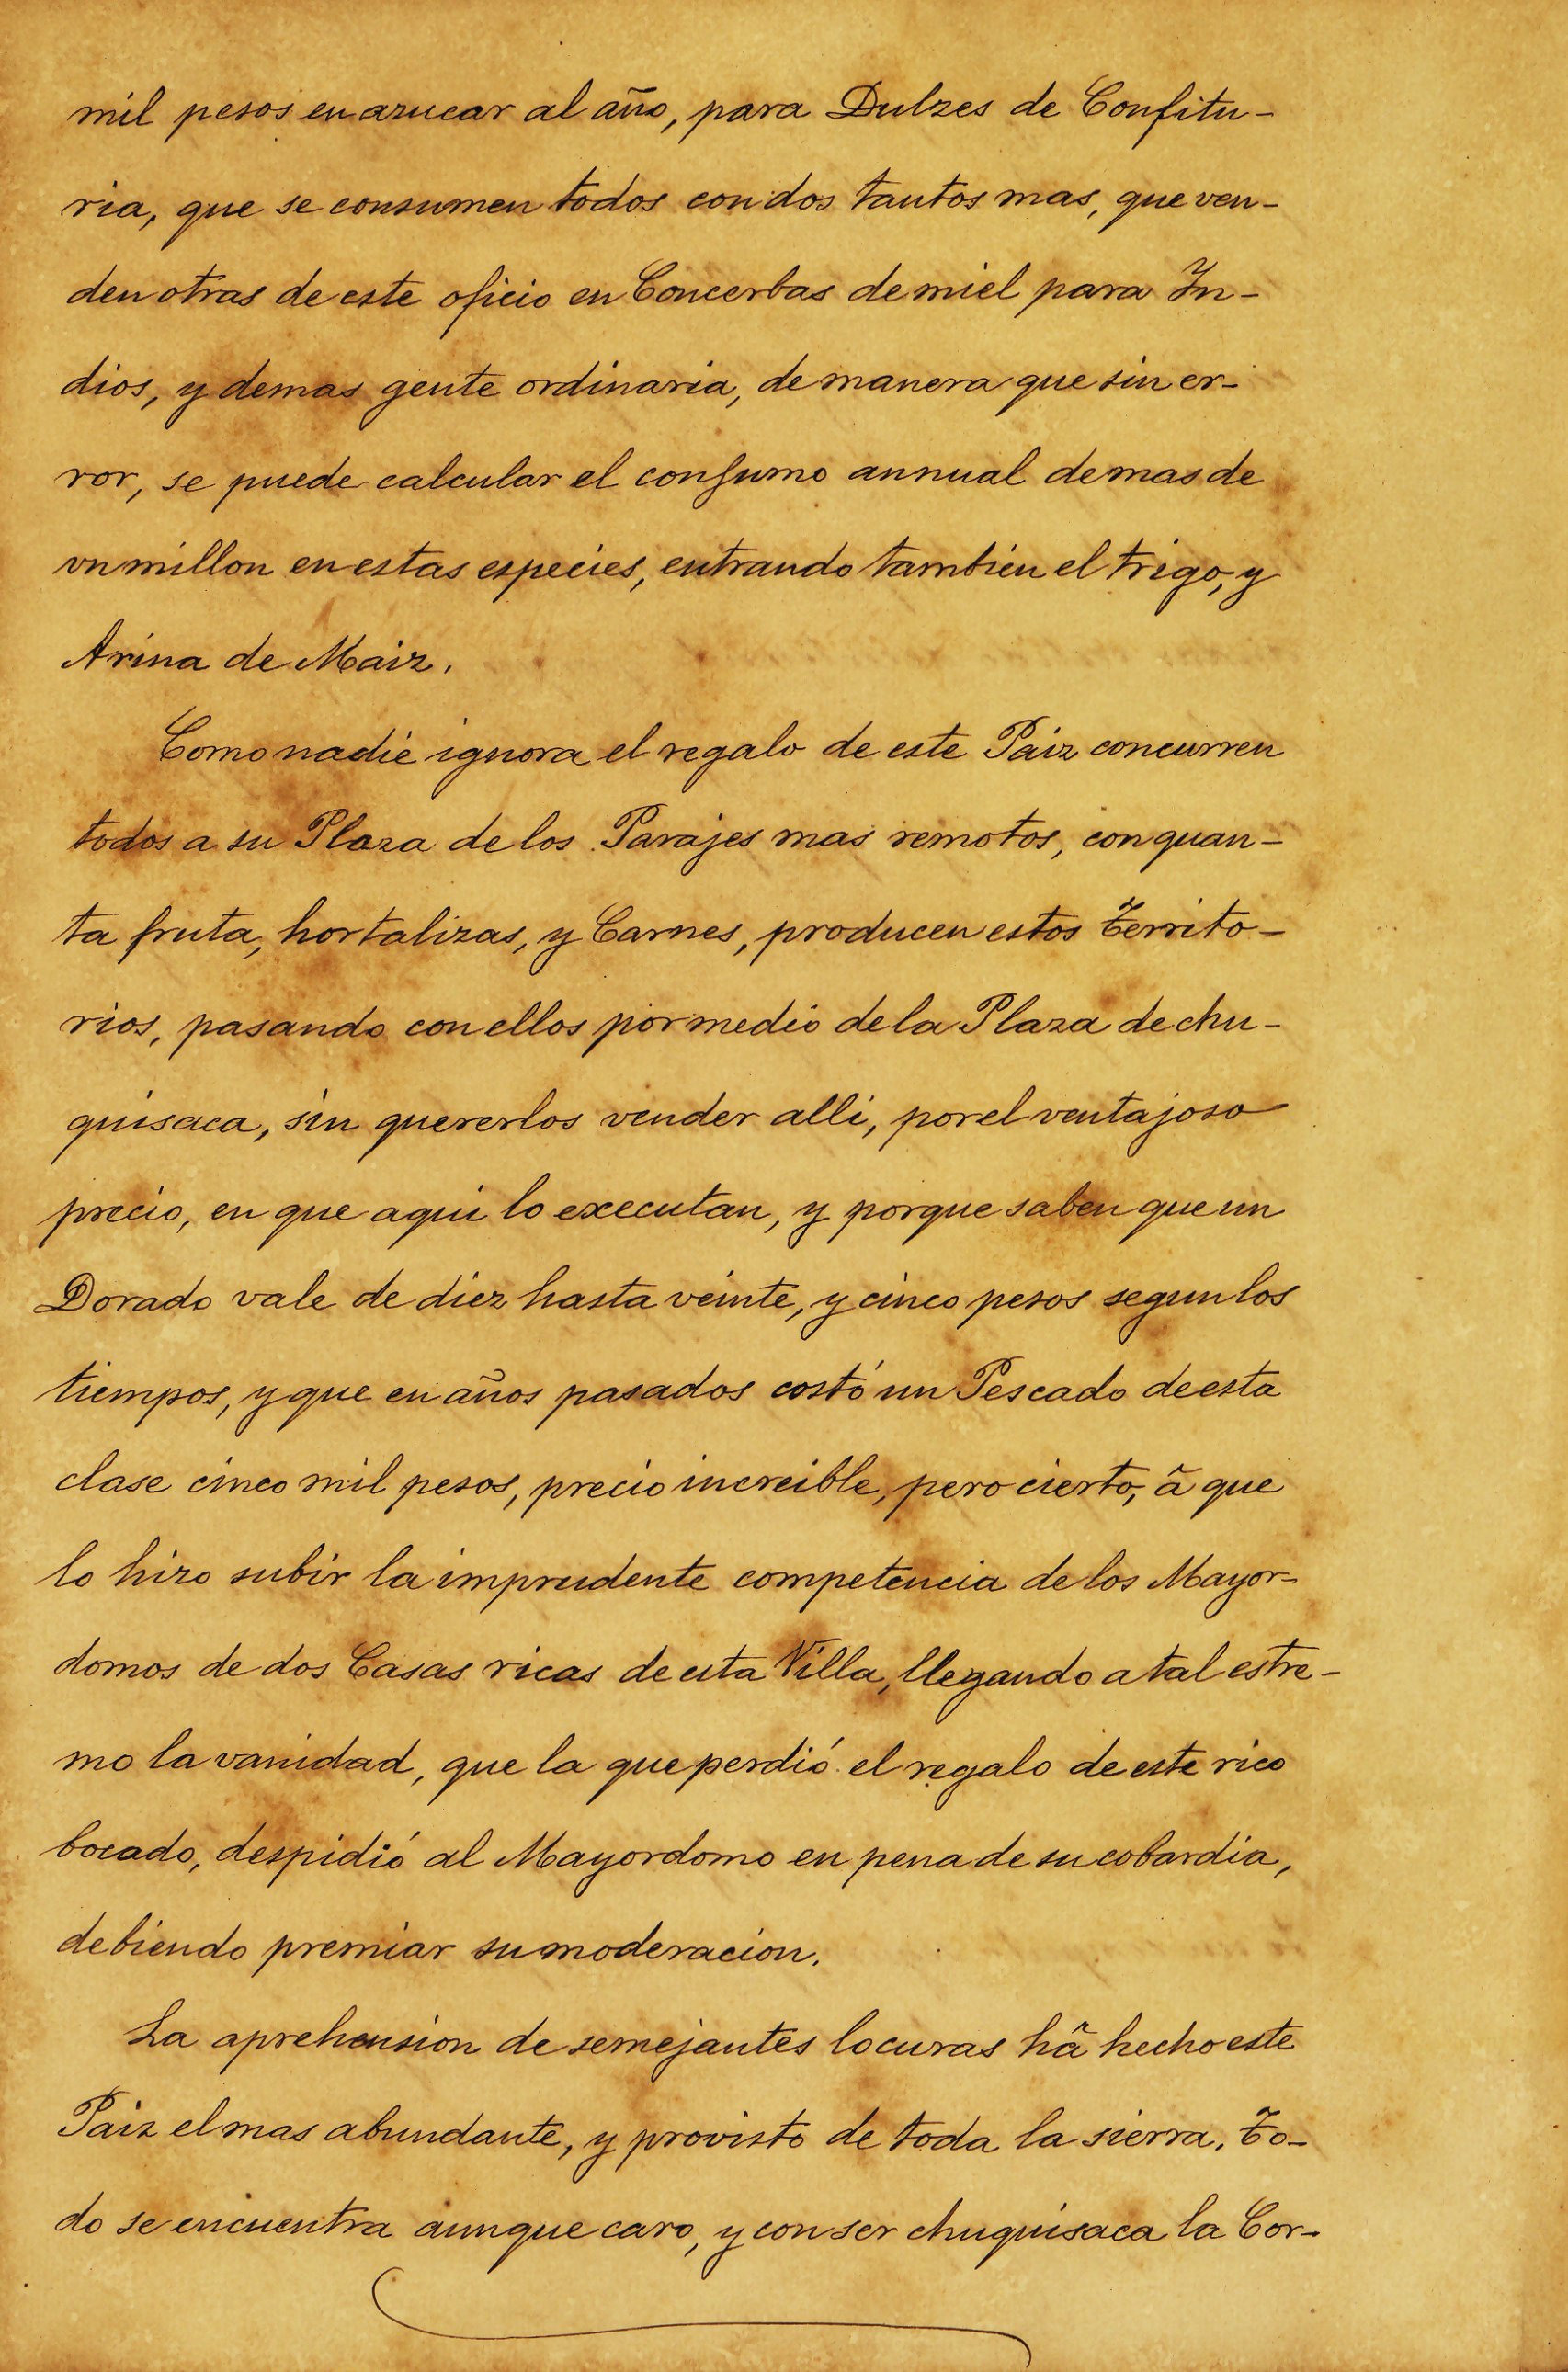 mil pesos en azucar al año, para Dulzes de Confitu-
ria, que se consumen todos con dos tantos mas, que ven-
den otras de este oficio en Concerbas de miel para In-
dios, y demas gente ordinaria, de manera que sin er-
ror, se puede calcular el consumo annual de mas de
un millon en estas especies, entrando tambien el trigo, y
Arina de Maiz.
Como nadie ignora el regalo de este Paiz concurren
todos a su Plaza de los Parajes mas remotos, con quan-
ta fruta, hortalizas, y Carnes, producen estos Territo-
rios, pasando con ellos por medio de la Plaza de chu-
quisaca, sin quererlos vender alli, por el ventajoso
precio, en que aqui lo executan, y porque saben que un
Dorado vale de diez hasta veinte, y cinco pesos segun los
tiempos, y que en años pasados costó un Pescado de esta
clase cinco mil pesos, precio increible, pero cierto, ã que
lo hizo subir la imprudente competencia de los Mayor-
domos de dos Casas ricas de esta Villa, llegando a tal estre-
mo la vanidad, que la que perdió el regalo de este rico
bocado, despidió al Mayordomo en pena de su cobardia,
debiendo premiar su moderacion.
La aprehension de semejantes locuras hã hecho este
Paiz el mas abundante, y provisto de toda la sierra. To-
do se encuentra aunque caro, y con ser chuquisaca la Cor-